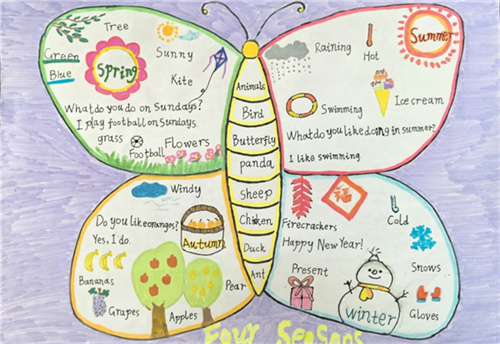 Tree
Green
Blue
Spring
Sunny
Kite
What do you do on Sundays?
I play football on Sundays.
grass
Football
Flowers
Raining
Hot
Summer
Swimming
Ice cream
What do you like doing in summer?
I like swimming
Animals
Bird
Butterfly
panda
Sheep
Chicken
Duck
Ant
Windy
Do you like oranges?
Yes, I do.
Autumn
Bananas
Grapes
Apples
Pear
Firecrackers
Happy New Year!
Cold
Snows
Present
winter
Gloves
Four Seasons